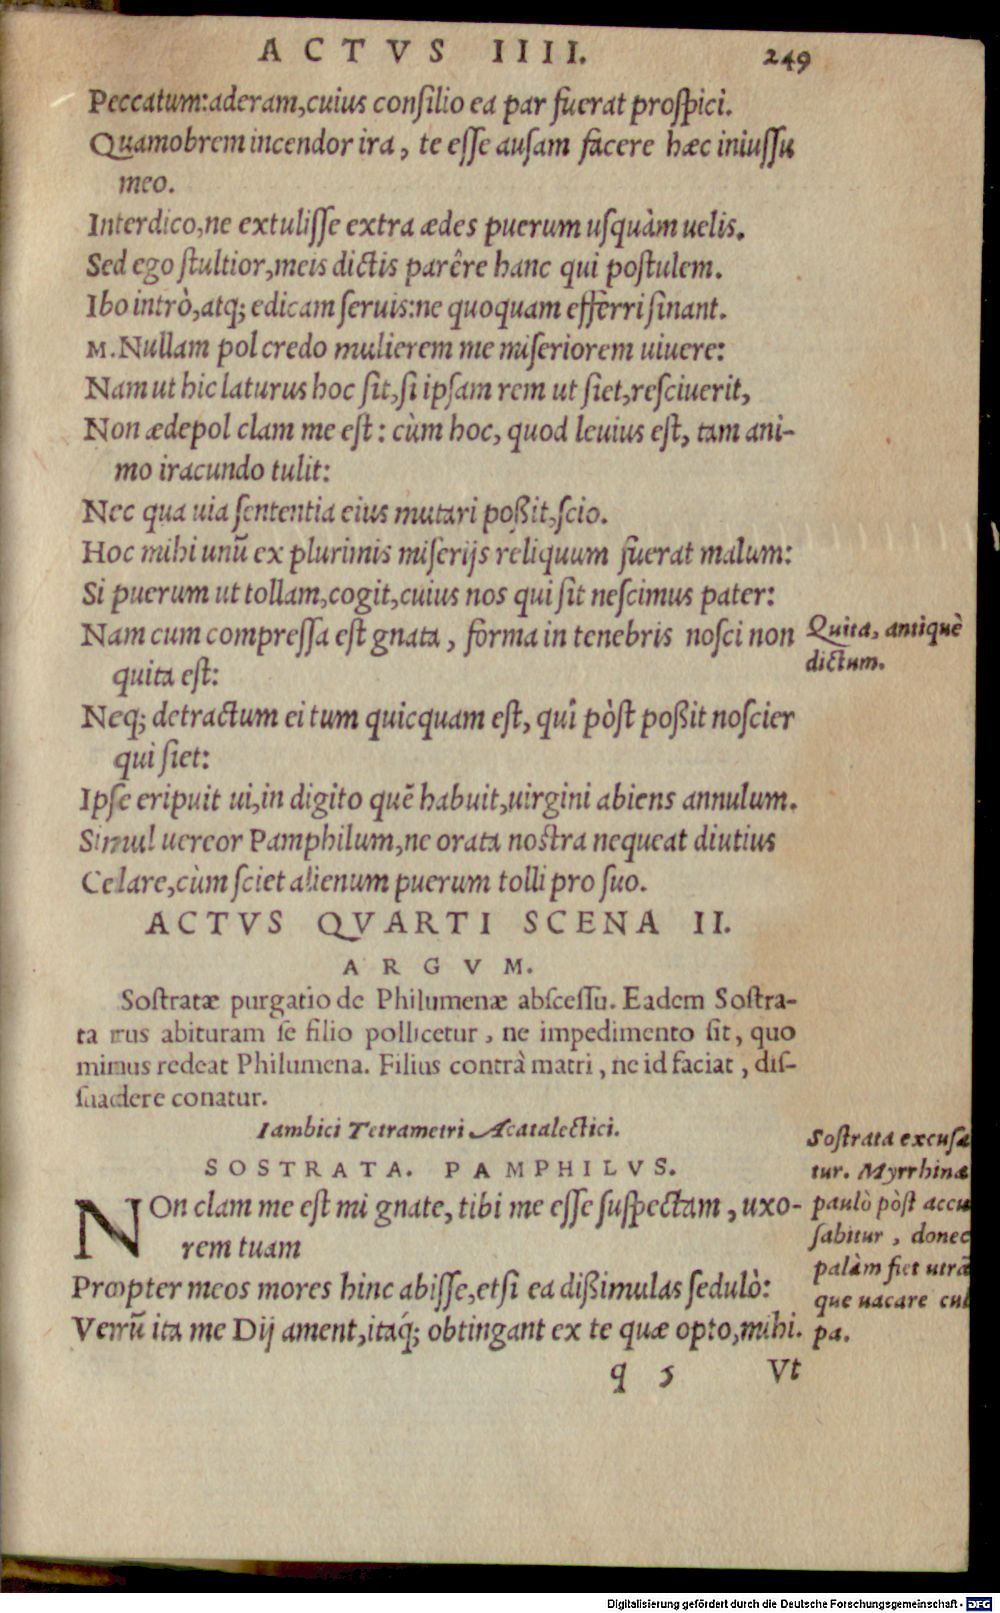 ACTVS IIII. 249
Peccatum: aderam, cuius consilio ea par fuerat prospici.
Quamobrem incendor ira, te esse ausam facere hæc iniussu
meo.
Interdico, ne extulisse extra ædes puerum usquàm uelis.
Sed ego stultior, meis dictis parêre hanc qui postulem.
Ibo intrò, atq; edicam seruis: ne quoquam efferri sinant.
M. Nullam pol credo mulierem me miseriorem uiuere:
Nam ut hic laturus hoc sit, si ipsam rem ut siet, resciuerit,
Non ædepol clam me est: cùm hoc, quod leuius est, tam ani-
mo iracundo tulit:
Nec qua uia sententia eius mutari poßit, scio.
Hoc mihi unũ ex plurimis miserijs reliquum fuerat malum:
Si puerum ut tollam, cogit, cuius nos qui sit nescimus pater:
Nam cum compressa est gnata, forma in tenebris nosci non
quita est:
Quita, antiquè
dictum.
Neq; detractum ei tum quicquam est, quî pòst poßit noscier
qui siet:
Ipse eripuit ui, in digito quẽ habuit, uirgini abiens annulum.
Simul uereor Pamphilum, ne orata nostra nequeat diutius
Celare, cùm sciet alienum puerum tolli pro suo.
ACTVS QVARTI SCENA II.
ARGVM.
Sostratæ purgatio de Philumenæ abscessu. Eadem Sostra-
ta rus abituram se filio pollicetur, ne impedimento sit, quo
minus redeat Philumena. Filius contrà matri, ne id faciat, dis-
suadere conatur.
Iambici Tetrametri Acatalectici.
SOSTRATA. PAMPHILVS.
NOn clam me est mi gnate, tibi me esse suspectam, uxo-
rem tuam
Propter meos mores hinc abisse, etsi ea dißimulas sedulò:
Verũ ita me Dij ament, itaq́; obtingant ex te quæ opto, mihi.
Sostrata excusa
tur. Myrrhina
paulò pòst accu
sabitur, donec
palàm fiet utrã
que uacare cul
pa.
q 5 Vt
Digitalisierung gefördert durch die Deutsche Forschungsgemeinschaft - DFG